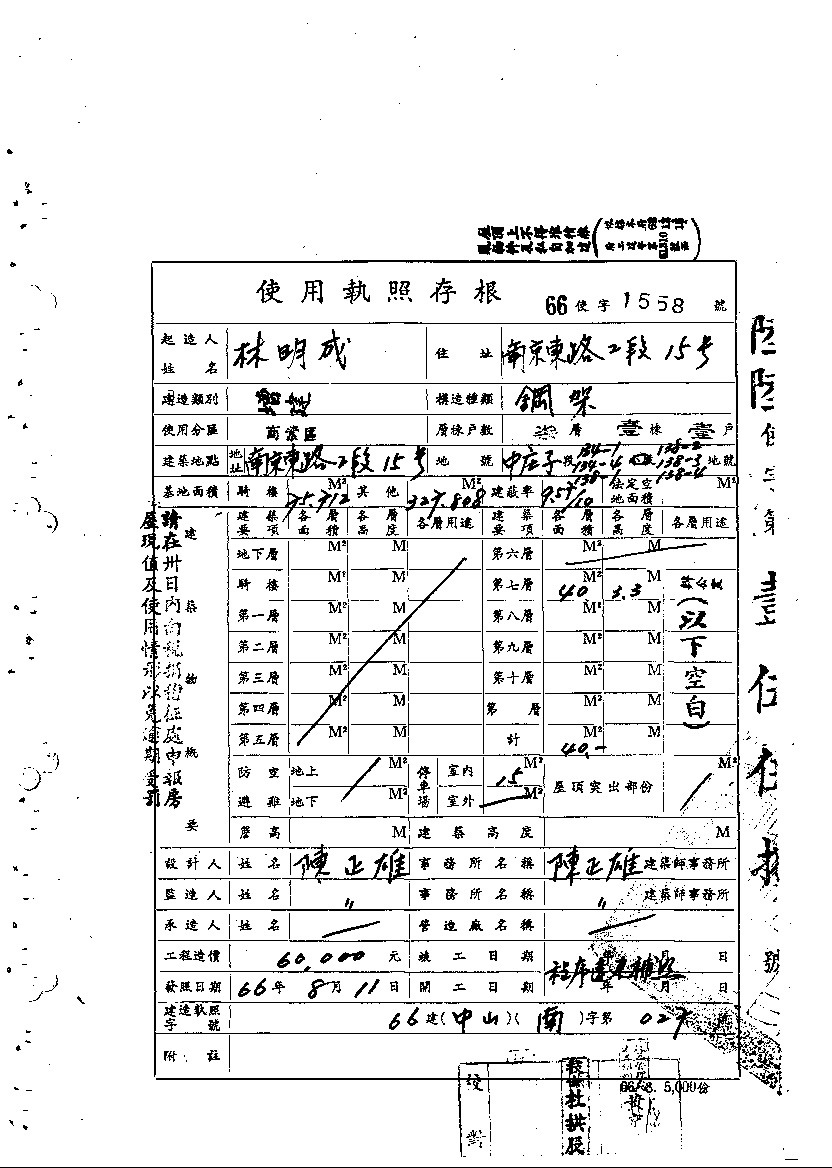 使用執照存根
66 使字 1558 號
起造人姓名 林明成 住址 南京東路2段15号
建造類別 構造種類 鋼架
使用分區 商業區 層棟戶數 柒層 壹棟 壹戶
建築地點 地址 南京東路2段15号 地號 中庄子段 134-1 134-4 138-1 138-2 138-3 138-4 地號
基地面積 騎樓 75.712 M² 其他 327.808 M² 建蔽率 法定空地面積 M²
建築要項 各層面積 各層高度 各層用途 建築要項 各層面積 各層高度 各層用途
建築物概要
地下層 M² M 第六層 M² M
騎樓 M² M 第七層 40 M² 3.3 M
第一層 M² M 第八層 M² M (以下空白)
第二層 M² M 第九層 M² M
第三層 M² M 第十層 M² M
第四層 M² M 第 層 M² M
第五層 M² M 計 40.- M²
防空避難 地上 M² 停車場 室內 15 M² 屋頂突出部份 M²
地下 M² 室外 M²
簷高 M 建築高度 M
設計人 姓名 陳正雄 事務所名稱 陳正雄 建築師事務所
監造人 姓名 〃 事務所名稱 〃 建築師事務所
承造人 姓名 營造廠名稱
工程造價 60,000 元 竣工日期 年 月 日
發照日期 66年 8月 11日 開工日期 年 月 日
程序違建補照
建造執照字號 66 建(中山)(南)字第 027 號
附註
請在卅日內向稅捐稽征處申報房
屋現值及使用情形以免逾期受罰
66. 8. 5,000份
校對